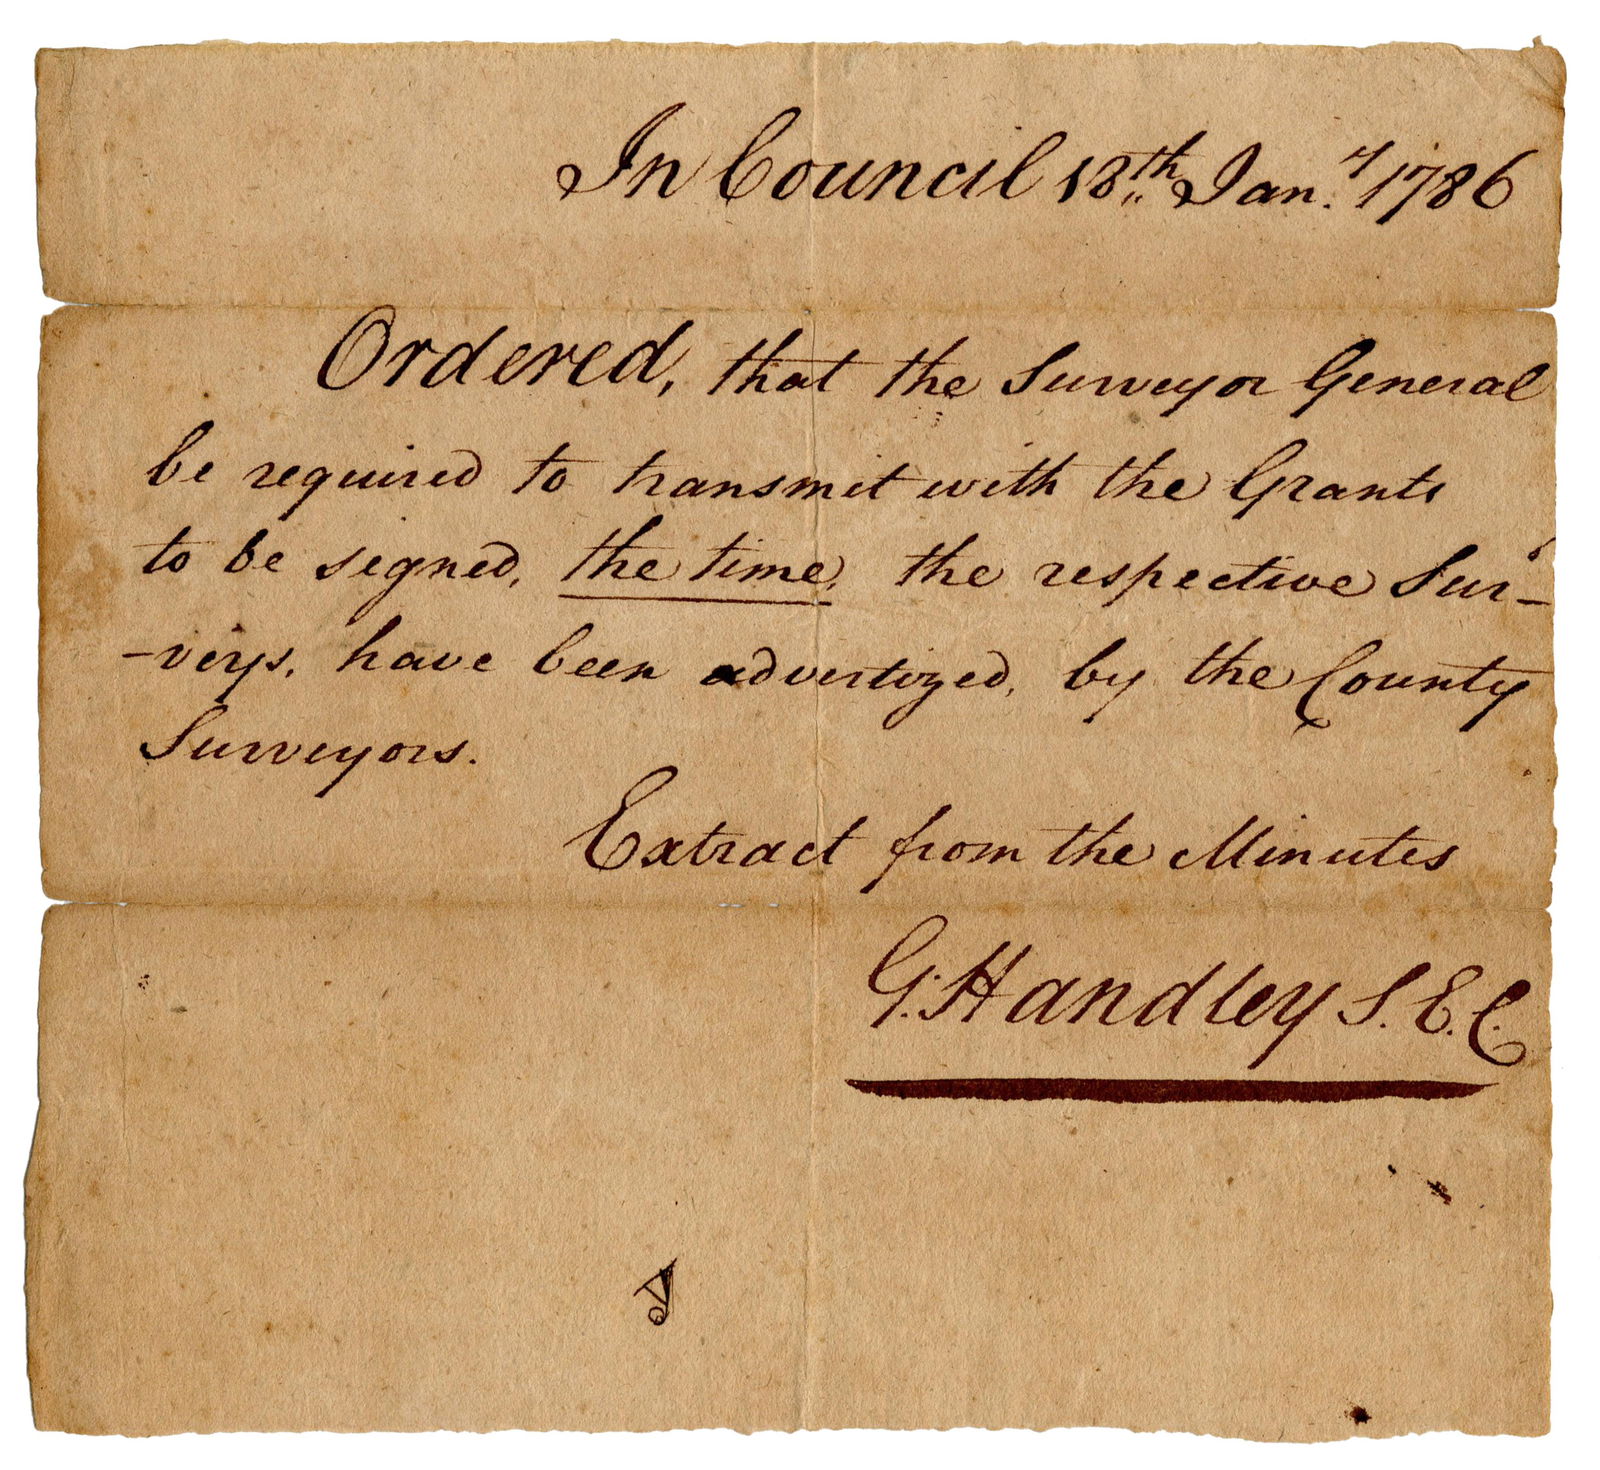 In Council 18th Jan.y 1786
Ordered, that the Surveyor General
be required to transmit with the Grants
to be signed, the time, the respective Sur-
-veys, have been advertized, by the County
Surveyors.
Extract from the Minutes
G. Handley S.E.C.